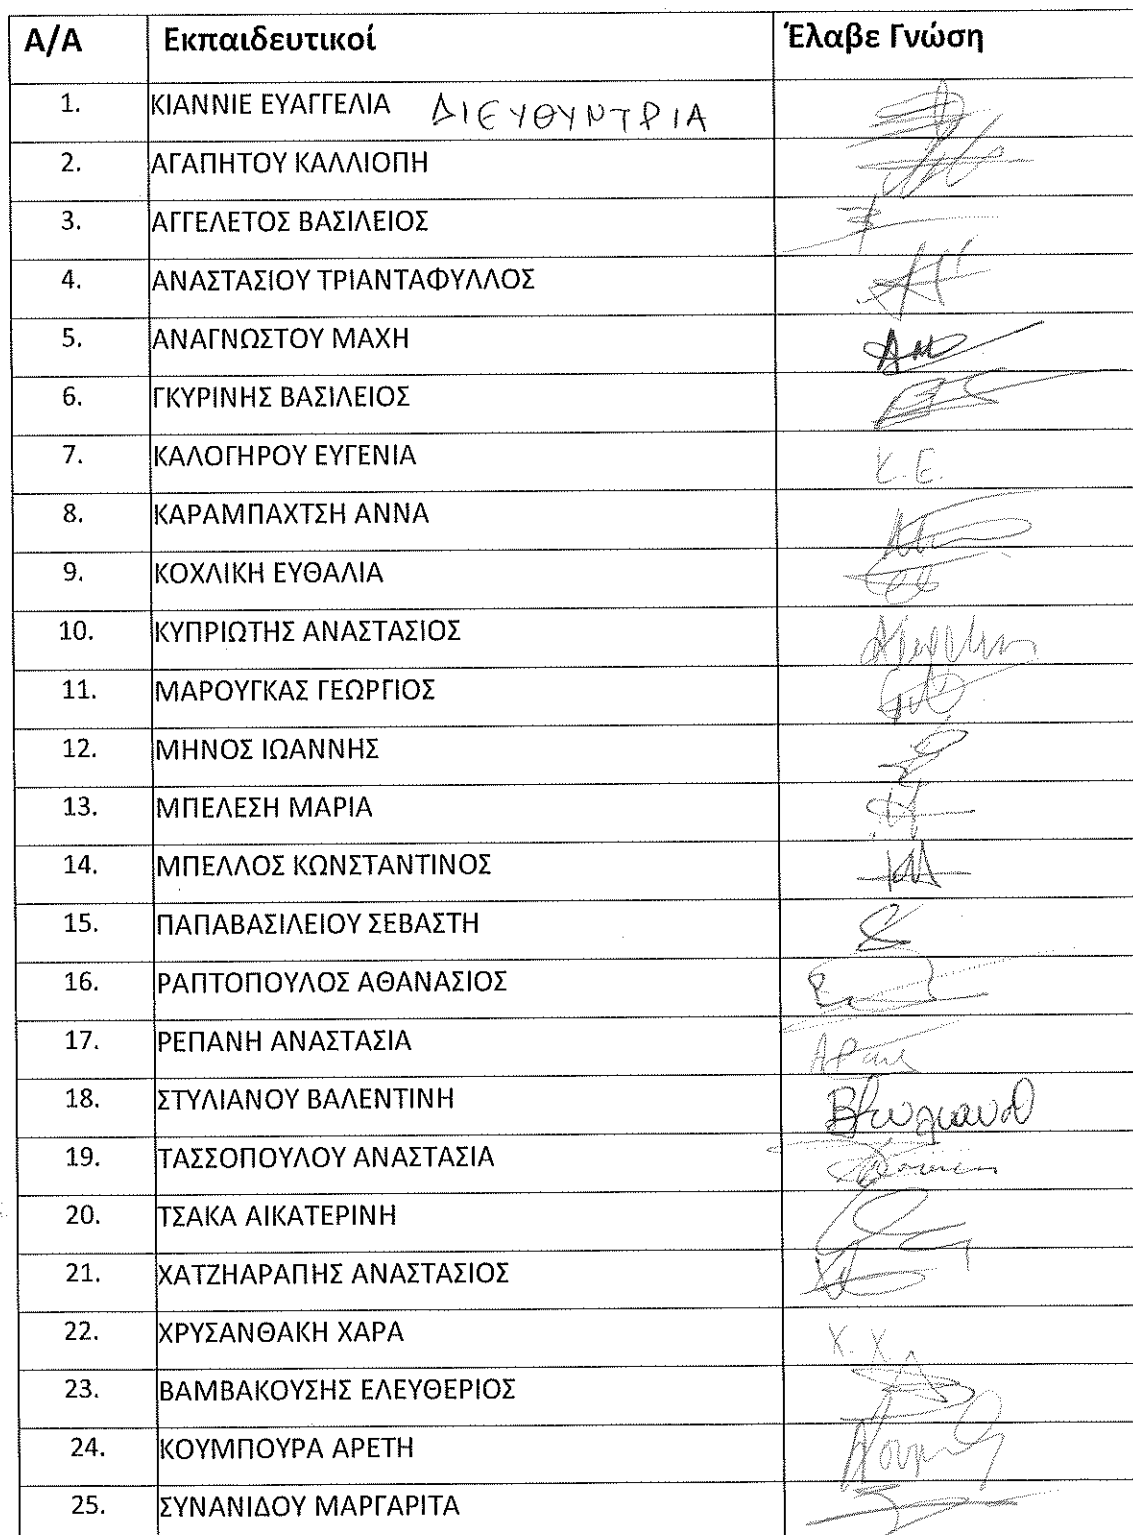 Α/Α Εκπαιδευτικοί Έλαβε Γνώση
1. ΚΙΑΝΝΙΕ ΕΥΑΓΓΕΛΙΑ ΔΙΕΥΘΥΝΤΡΙΑ
2. ΑΓΑΠΗΤΟΥ ΚΑΛΛΙΟΠΗ
3. ΑΓΓΕΛΕΤΟΣ ΒΑΣΙΛΕΙΟΣ
4. ΑΝΑΣΤΑΣΙΟΥ ΤΡΙΑΝΤΑΦΥΛΛΟΣ
5. ΑΝΑΓΝΩΣΤΟΥ ΜΑΧΗ
6. ΓΚΥΡΙΝΗΣ ΒΑΣΙΛΕΙΟΣ
7. ΚΑΛΟΓΗΡΟΥ ΕΥΓΕΝΙΑ Κ.Ε.
8. ΚΑΡΑΜΠΑΧΤΣΗ ΑΝΝΑ
9. ΚΟΧΛΙΚΗ ΕΥΘΑΛΙΑ
10. ΚΥΠΡΙΩΤΗΣ ΑΝΑΣΤΑΣΙΟΣ
11. ΜΑΡΟΥΓΚΑΣ ΓΕΩΡΓΙΟΣ
12. ΜΗΝΟΣ ΙΩΑΝΝΗΣ
13. ΜΠΕΛΕΣΗ ΜΑΡΙΑ
14. ΜΠΕΛΛΟΣ ΚΩΝΣΤΑΝΤΙΝΟΣ
15. ΠΑΠΑΒΑΣΙΛΕΙΟΥ ΣΕΒΑΣΤΗ
16. ΡΑΠΤΟΠΟΥΛΟΣ ΑΘΑΝΑΣΙΟΣ
17. ΡΕΠΑΝΗ ΑΝΑΣΤΑΣΙΑ
18. ΣΤΥΛΙΑΝΟΥ ΒΑΛΕΝΤΙΝΗ
19. ΤΑΣΣΟΠΟΥΛΟΥ ΑΝΑΣΤΑΣΙΑ
20. ΤΣΑΚΑ ΑΙΚΑΤΕΡΙΝΗ
21. ΧΑΤΖΗΑΡΑΠΗΣ ΑΝΑΣΤΑΣΙΟΣ
22. ΧΡΥΣΑΝΘΑΚΗ ΧΑΡΑ Χ.Χ.
23. ΒΑΜΒΑΚΟΥΣΗΣ ΕΛΕΥΘΕΡΙΟΣ
24. ΚΟΥΜΠΟΥΡΑ ΑΡΕΤΗ
25. ΣΥΝΑΝΙΔΟΥ ΜΑΡΓΑΡΙΤΑ